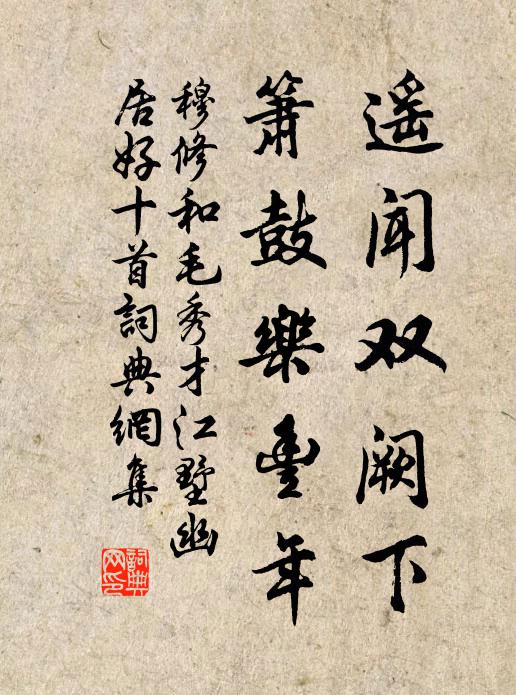 遥闻双阙下
箫鼓樂豊年
穆修和毛秀才江墅幽
居好十首詞典網集
詞典
网印